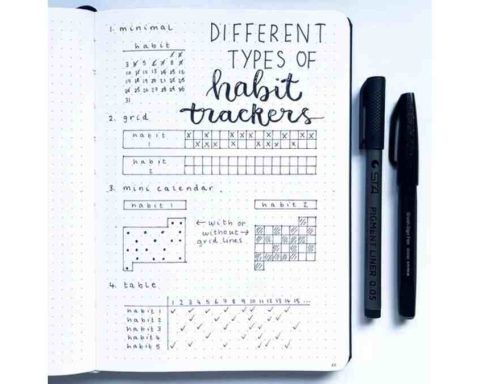 1. minimal
DIFFERENT
TYPES OF
habit
trackers
habit
31
2. grid
habit
1
habit
2
3. mini calendar
habit 1
habit 2
←with or
without→
grid lines
4. table
1 2 3 4 5 6 7 8 9 10 11 12 13 14 15 ...
habit 1
habit 2
habit 3
habit 4
habit 5
PIGMENT LINER 0.05